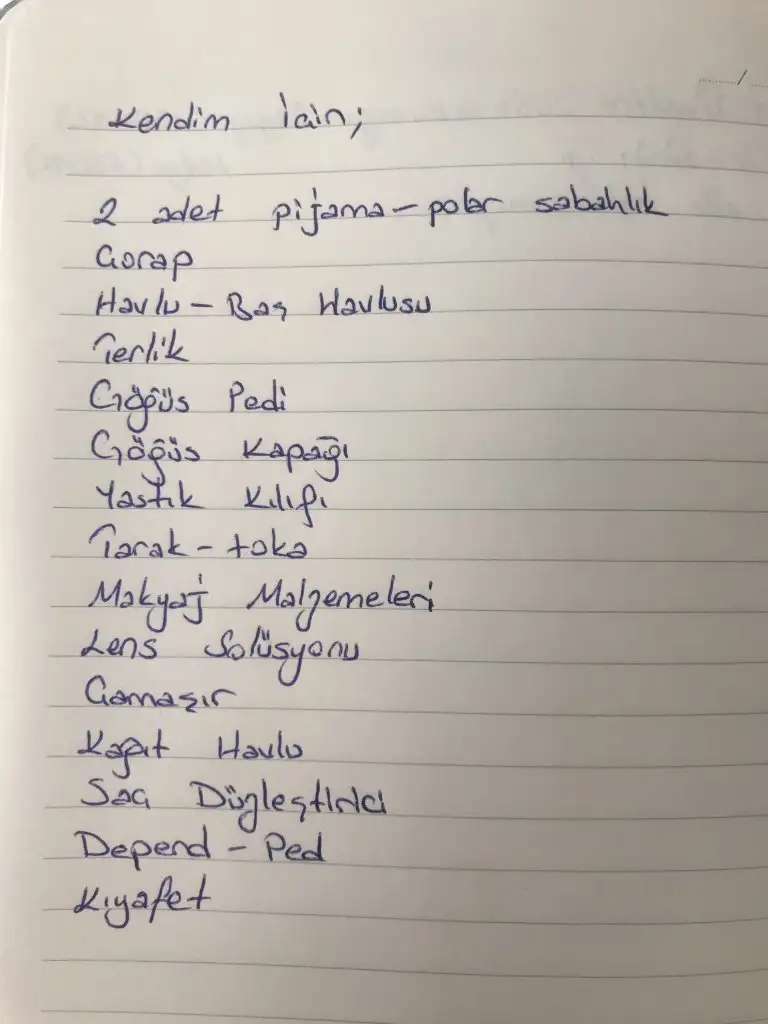 Kendim İçin;
2 adet pijama - polar sabahlık
Çorap
Havlu - Baş Havlusu
Terlik
Göğüs Pedi
Göğüs Kapağı
Yastık Kılıfı
Tarak - toka
Makyaj Malzemeleri
Lens Solüsyonu
Çamaşır
Kağıt Havlu
Saç Düzleştirici
Depend - Ped
Kıyafet